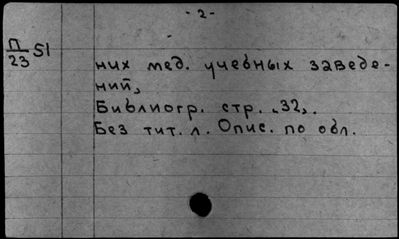 - 2 -
П/23 51
них мед. учебных заведе-
ний,
Библиогр. стр. „32„.
Без тит. л. Опис. по обл.